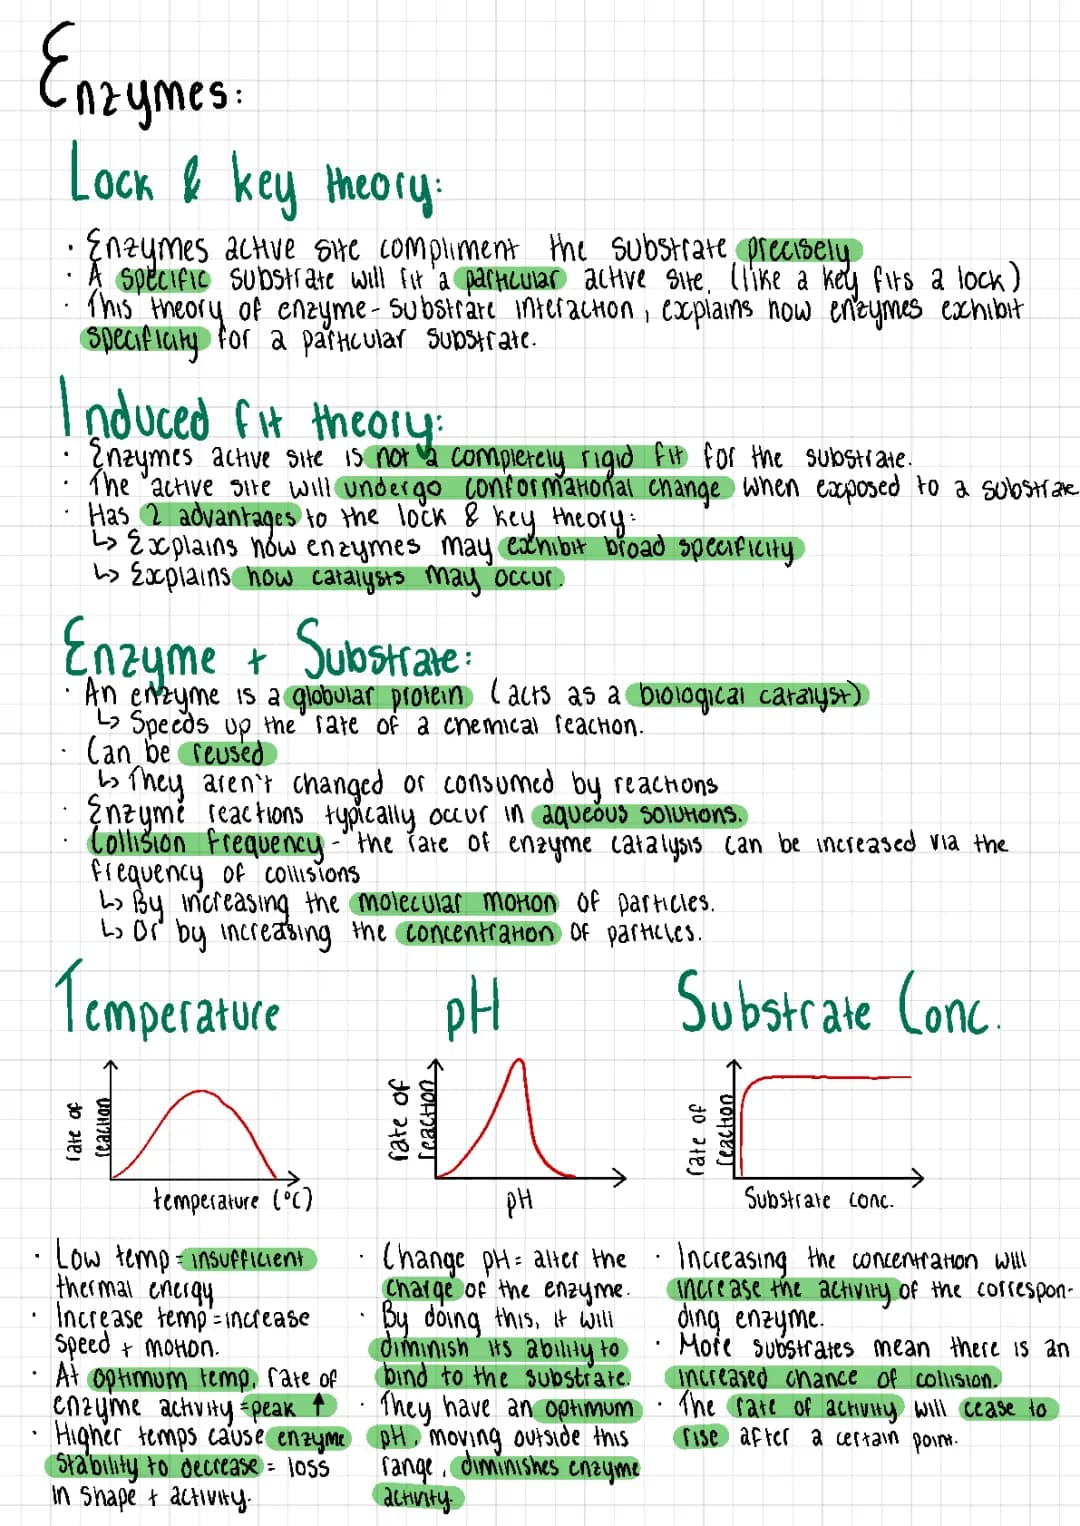 Enzymes:
Lock & key theory:
· Enzymes active site compliment the substrate precisely
· A specific substrate will fit a particular active site. (like a key fits a lock)
· This theory of enzyme-substrate interaction, explains how enzymes exhibit
specificity for a particular substrate.
Induced fit theory:
· Enzymes active site is not a completely rigid fit for the substrate.
· The active site will undergo conformational change when exposed to a substrate
· Has 2 advantages to the lock & key theory:
↳ Explains how enzymes may exhibit broad specificity
↳ Explains how catalysts may occur.
Enzyme + Substrate:
· An enzyme is a globular protein (acts as a biological catalyst)
↳ Speeds up the rate of a chemical reaction.
· Can be reused
↳ They aren't changed or consumed by reactions
· Enzyme reactions typically occur in aqueous solutions.
· Collision frequency - the rate of enzyme catalysis can be increased via the
frequency of collisions
↳ By increasing the molecular motion of particles.
↳ Or by increasing the concentration of particles.
Temperature
rate of
reaction
temperature (°C)
· Low temp = insufficient
thermal energy
· Increase temp = increase
speed + motion.
· At optimum temp, rate of
enzyme activity = peak ↑
· Higher temps cause enzyme
stability to decrease = loss
in shape + activity.
pH
rate of
reaction
pH
· Change pH = alter the
charge of the enzyme.
· By doing this, it will
diminish its ability to
bind to the substrate.
· They have an optimum
pH, moving outside this
range, diminishes enzyme
activity.
Substrate Conc.
rate of
reaction
Substrate conc.
· Increasing the concentration will
increase the activity of the correspon-
ding enzyme.
· More substrates mean there is an
increased chance of collision.
· The rate of activity will cease to
rise after a certain point.